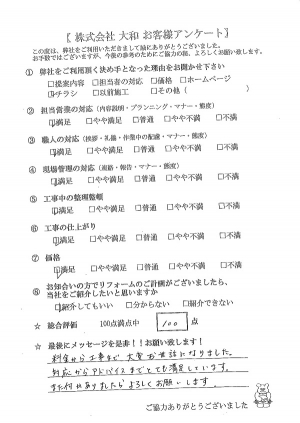 〖 株式会社 大和 お客様アンケート〗
この度は、弊社をご利用いただきまして誠にありがとうございました。
お手数ではございますが、今後の参考のためにご協力の程、よろしくお願い致します。
① 弊社をご利用頂く決め手となった理由をお聞かせ下さい
□提案内容 □担当者の対応 □価格 □ホームページ
☑チラシ □以前施工 □その他( )
② 担当営業の対応(内容説明・プランニング・マナー・態度)
☑満足 □やや満足 □普通 □やや不満 □不満
③ 職人の対応(挨拶・礼儀・作業中の配慮・マナー・態度)
☑満足 □やや満足 □普通 □やや不満 □不満
④ 現場管理の対応(連絡・報告・マナー・態度)
☑満足 □やや満足 □普通 □やや不満 □不満
⑤ 工事中の整理整頓
☑満足 □やや満足 □普通 □やや不満 □不満
⑥ 工事の仕上がり
☑満足 □やや満足 □普通 □やや不満 □不満
⑦ 価格
☑満足 □やや満足 □普通 □やや不満 □不満
⑧ お知合いの方でリフォームのご計画がございましたら、
当社をご紹介したいと思いますか
☑紹介してもいい □分からない □紹介できない
☆ 総合評価 100点満点中 100 点
☆ 最後にメッセージを是非!!お願い致します!
料金から工事まで大変お世話になりました。
対応からアドバイスまでとても満足しています。
また何かありましたらよろしくお願いします。
ご協力ありがとうございました